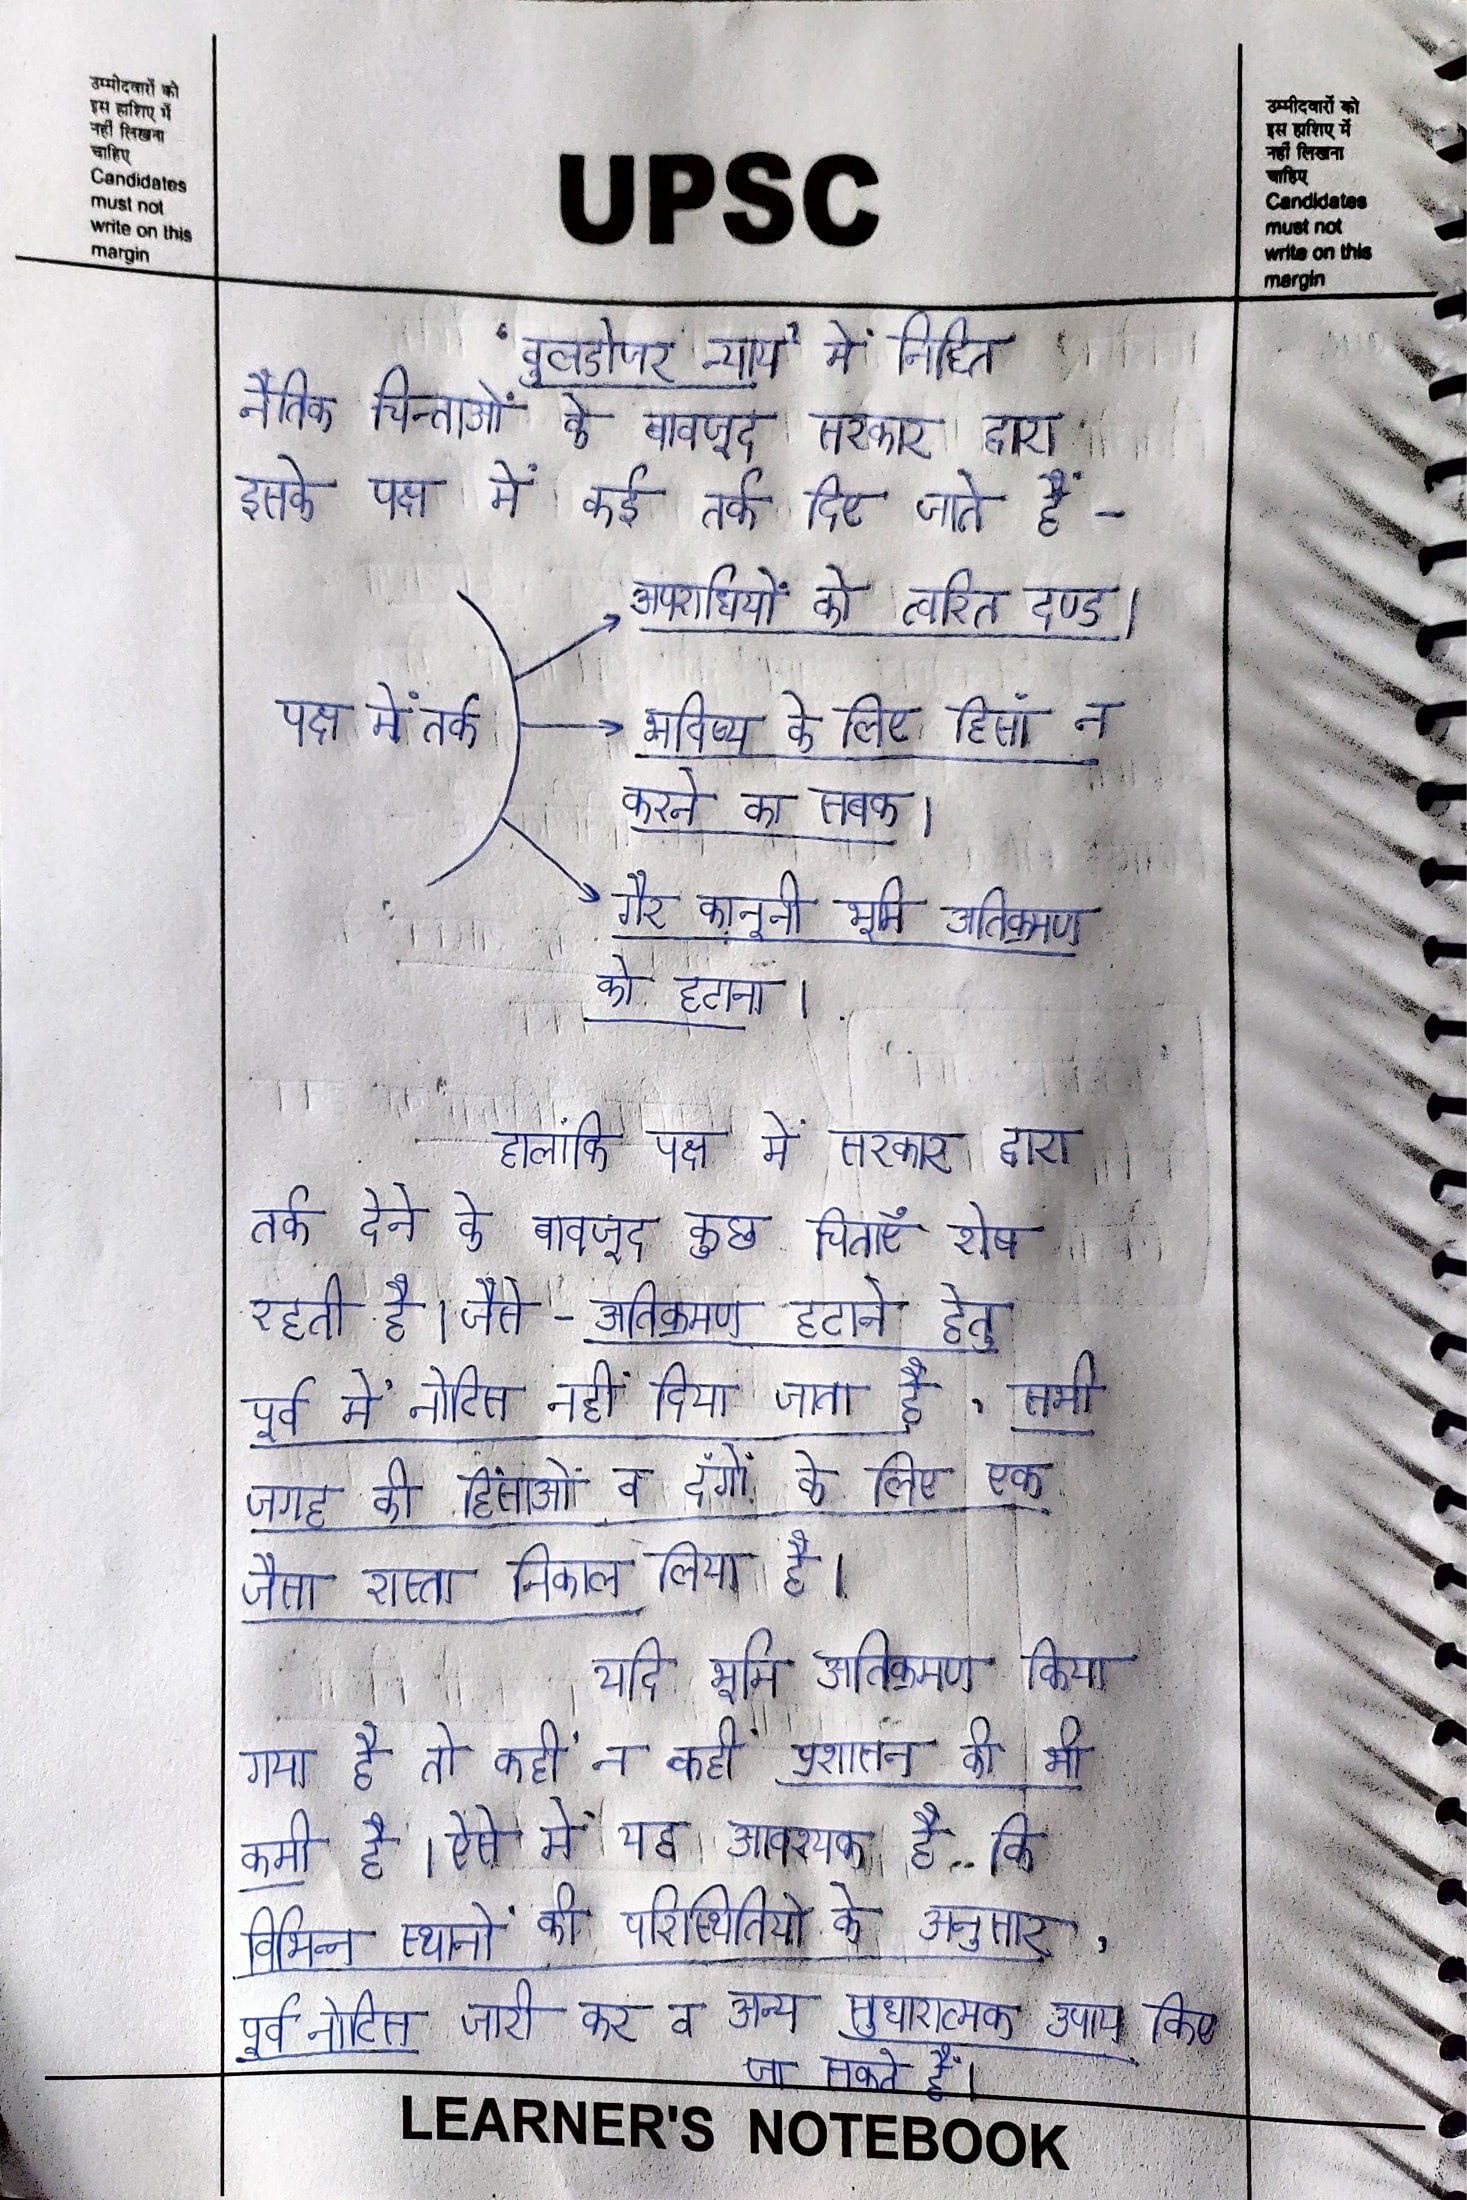 उम्मीदवारों को
इस हाशिए में
नहीं लिखना
चाहिए
Candidates
must not
write on this
margin
UPSC
उम्मीदवारों को
इस हाशिए में
नहीं लिखना
चाहिए
Candidates
must not
write on this
margin
'बुलडोजर न्याय' में निहित
नैतिक चिन्ताओं के बावजूद सरकार द्वारा
इसके पक्ष में कई तर्क दिए जाते हैं -
अपराधियों को त्वरित दण्ड।
पक्ष में तर्क
भविष्य के लिए हिसां न
करने का सबक।
गैर कानूनी भूमि अतिक्रमण
को हटाना।
हालांकि पक्ष में सरकार द्वारा
तर्क देने के बावजूद कुछ चिताएँ शेष
रहती है। जैसे - अतिक्रमण हटाने हेतु
पूर्व में नोटिस नहीं दिया जाता है, सभी
जगह की हिंसाओं व दंगों के लिए एक
जैसा रास्ता निकाल लिया है।
यदि भूमि अतिक्रमण किया
गया है तो कहीं न कहीं प्रशासन की भी
कमी है। ऐसे में यह आवश्यक है कि
विभिन्न स्थानों की परिस्थितियो के अनुसार,
पूर्व नोटिस जारी कर व अन्य सुधारात्मक उपाय किए
जा सकते हैं।
LEARNER'S NOTEBOOK